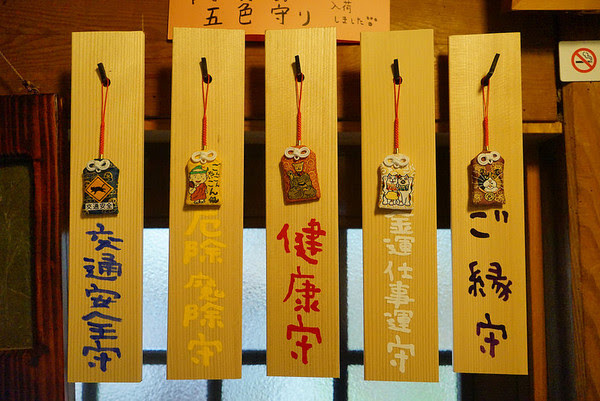 五色守り
入荷
しました
交通安全守
厄除魔除守
健康守
金運仕事運守
ご縁守
交通安全